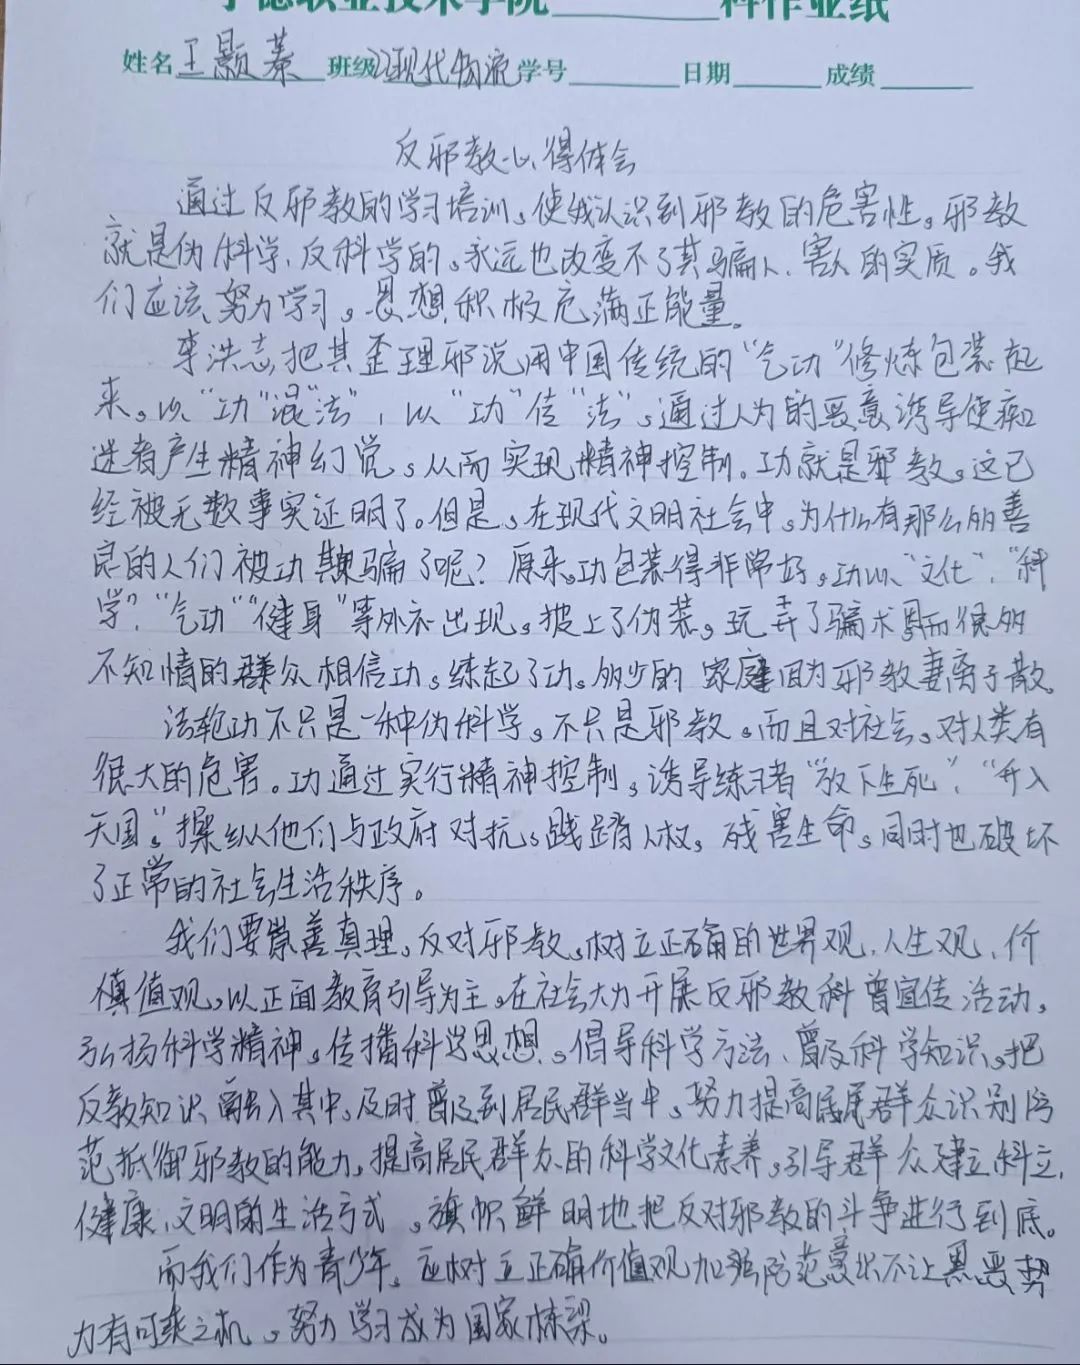 宁德职业技术学院______科作业纸
姓名 王颢蓁 班级 22现代物流 学号 日期 成绩
反邪教心得体会
通过反邪教的学习培训。使我认识到邪教的危害性。邪教
就是伪科学、反科学的。永远也改变不了其骗人、害人的实质。我
们应该努力学习。思想积极充满正能量。
李洪志把其歪理邪说用中国传统的“气功”修炼包装起
来。以“功”混“法”，以“功”传“法”。通过人为的恶意诱导使痴
迷者产生精神幻觉。从而实现精神控制。功就是邪教。这已
经被无数事实证明了。但是。在现代文明社会中。为什么有那么多善
良的人们被功欺骗了呢？原来。功包装得非常好。功以“文化”、“科
学”、“气功”“健身”等外衣出现。披上了伪装。玩弄了骗术 而很多
不知情的群众相信功。练起了功。多少的家庭因为邪教妻离子散。
法轮功不只是一种伪科学。不只是邪教。而且对社会。对人类有
很大的危害。功通过实行精神控制。诱导练习者“放下生死”、“升入
天国”。操纵他们与政府对抗。践踏人权。残害生命。同时也破坏
了正常的社会生活秩序。
我们要崇善真理。反对邪教。树立正确的世界观、人生观、价
值值观。以正面教育引导为主。在社会大力开展反邪教科普宣传活动。
弘扬科学精神。传播科学思想。倡导科学方法、普及科学知识。把
反教知识融入其中。及时普及到居民群当中。努力提高居民群众识别防
范抵御邪教的能力。提高居民群众的科学文化素养。引导群众建立科立、
健康、文明的生活方式。旗帜鲜明地把反对邪教的斗争进行到底。
而我们作为青少年。应树立正确价值观加强防范意识不让黑恶势
力有可乘之机。努力学习成为国家栋梁。